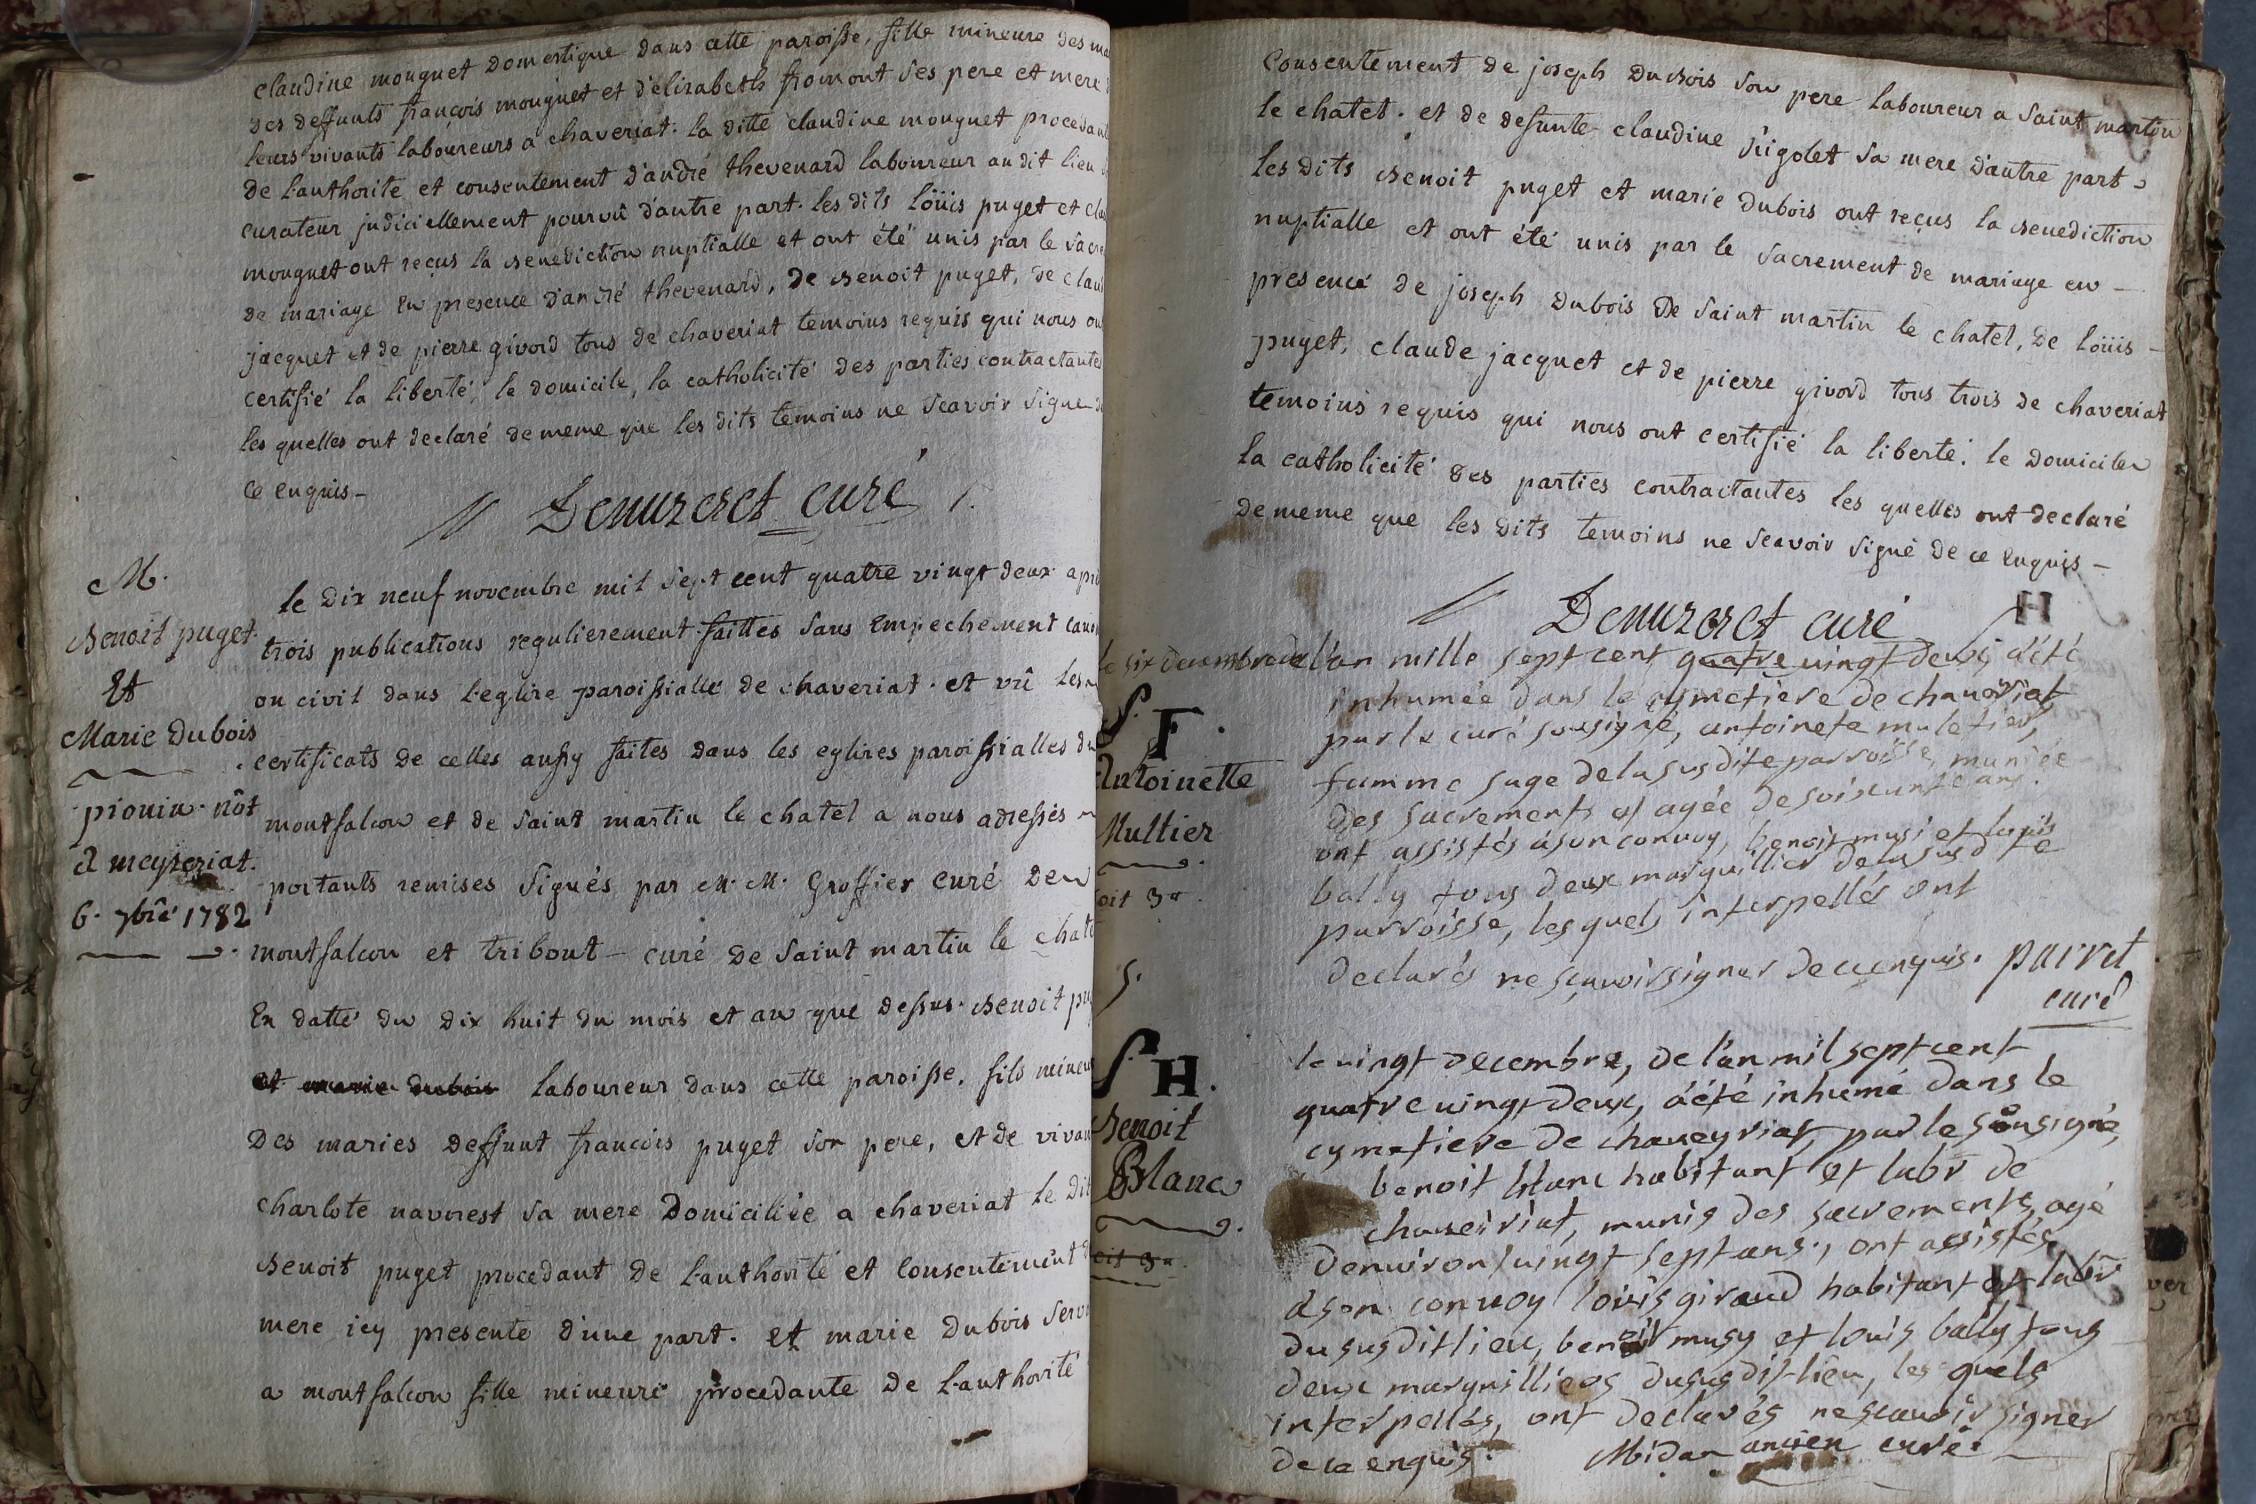 claudine mouguet domestique dans cette paroisse, fille mineure des
des deffunts françois mouguet et d'elizabeth fromont ses pere et mere
leurs vivants laboureurs a chaveriat. la ditte claudine mouguet procedant
de l'authorité et consentement d'andré thevenard laboureur au dit lieu
curateur judiciellement pourvû d'autre part. les dits löüis puget et
mouguet ont reçus la benediction nuptialle et ont été unis par le
de mariage en presence d'andré thevenard, de benoit puget, de
jacquet et de pierre givord tous de chaveriat temoins requis qui nous
certifié la liberté, le domicile, la catholicité des parties contractantes
les quelles ont declaré de meme que les dits temoins ne scavoir signe
ce enquis -
Demurcret curé
M.
Benoit puget
Et
Marie Dubois
piouin not
a meyzeriat.
6. 7bre 1782
le dix neuf novembre mil sept cent quatre vingt deux
trois publications regulierement faittes sans empechement
ou civil dans l'eglise paroissialle de chaveriat. et vû les
certificats de celles aussy faites dans les eglises paroissialles
montfalcon et de saint martin le chatel a nous adressés
portants remises signés par M. M. Groffier curé de
montfalcon et tribout - curé de saint martin le
En datte du dix huit du mois et an que dessus. Benoit
et marie dubois laboureur dans cette paroisse. fils
des maries deffunt françois puget son pere, et de
charlote navorest sa mere domiciliée a chaveriat le
Benoit puget procedant de l'authorité et consentement
mere icy presente d'une part. et marie dubois
a montfalcon fille mineure procedante de l'authorité
consentement de joseph dubois son pere laboureur a saint martin
le chatel. et de defunte claudine sa mere d'autre part
les dits benoit puget et marie dubois ont reçus la benediction
nuptialle et ont été unis par le sacrement de mariage en -
presence de joseph dubois de saint martin le chatel, de löüis -
puget, claude jacquet et de pierre givord tous trois de chaveriat
temoins requis qui nous ont certifié la liberté. le domicile
la catholicité des parties contractantes les quelles ont declaré
de meme que les dits temoins ne scavoir signé de ce enquis -
Demurcret curé
H
S. F.
Antoinette
Multier
S.
S. H.
Benoit
Blanc
le six decembre de l'an mille sept cent quatre vingt deux a été
inhumée dans le cymetiere de chaveriat
par le curé sousigné, antoinete muletier,
femme sage de la susdite parroisse, munie
des sacrements et agée de soixante ans.
ont assistés a son convoy, benoit musi et louis
bally tous deux marguillier de la susdite
parroisse, les quels interpellés ont
declarés ne sçavoir signer de ce enquis. parret
curé
le vingt decembre, de l'an mil sept cent
quatre vingt deux, a été inhumé dans le
cymetiere de chaveyriat, par le sousigné,
benoit blanc habitant et labr de
chaveiriat, munis des sacrements, agé
d'environ vingt sept ans, ont assistés
a son convoy louis giraud habitant et labr
du susdit lieu, benoit musy et louis bally tous
deux marguilliers du susdit-lieu, les quels
interpellés, ont declarés ne scavoir signer
de ce enquis. Midan ancien curé